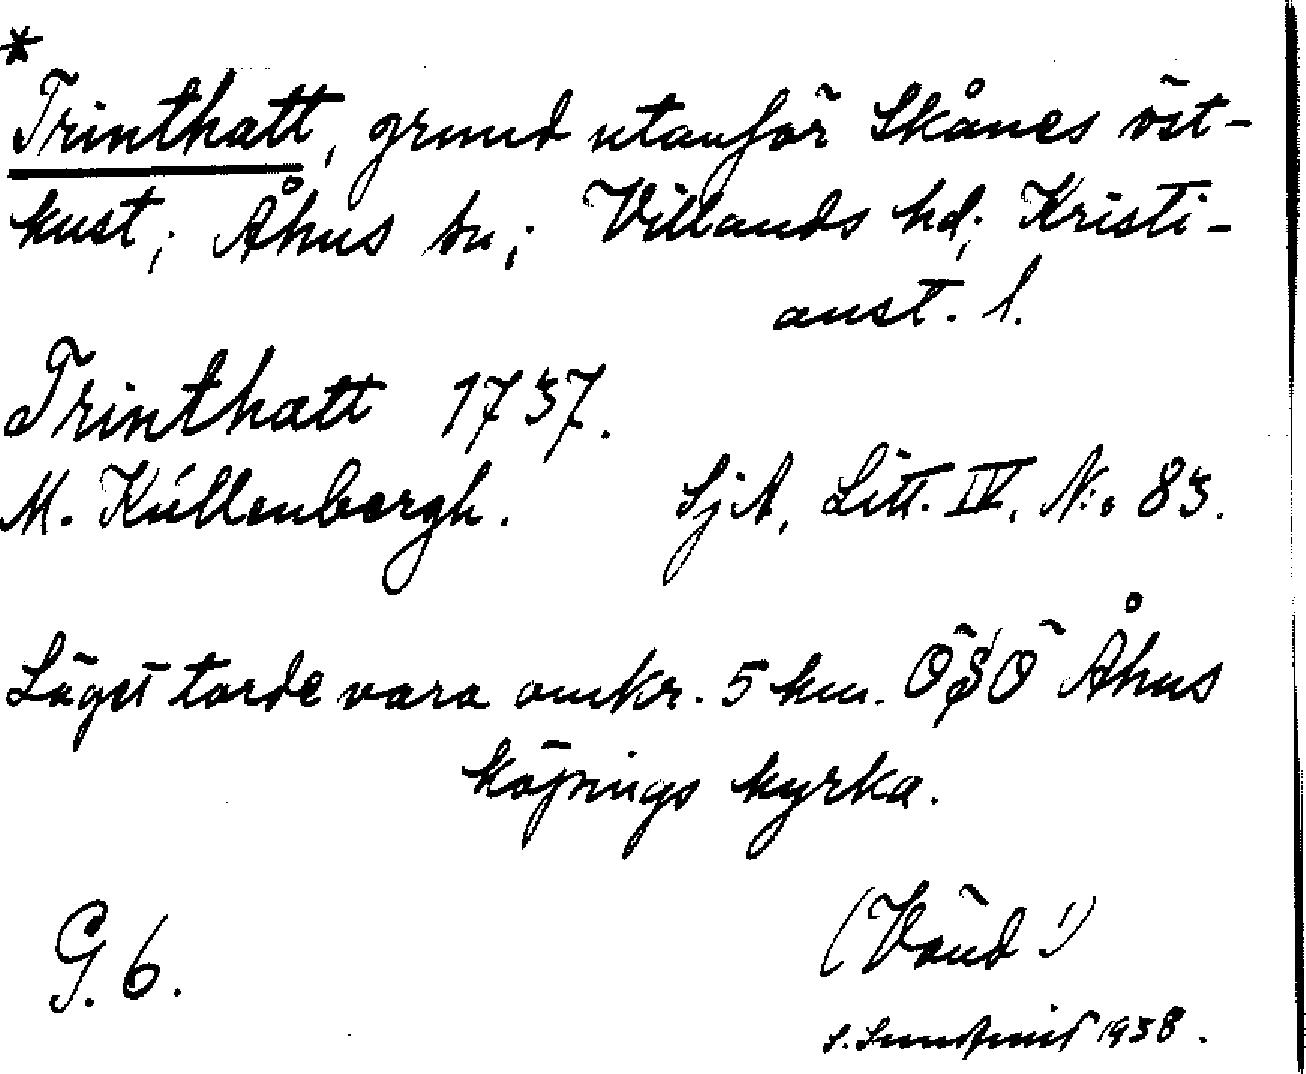 *
Trinthatt, grund utanför Skånes öst-
kust; Åhus sn; Villands hd; Kristi-
anst. l.
Trinthatt 1737.
M. Kúllenbergh. SjA, Litt. IV. N:o 83.
Läget torde vara omkr. 5 km. ÖSÖ Åhus
köpings kyrka.
G. 6.
(Vänd!)
S. 1938.